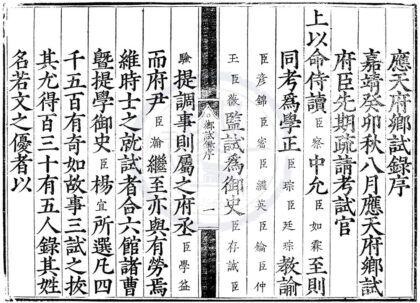 應天鄉試錄序
嘉靖癸卯秋八月應天府鄉試
府臣先期疏請考試官
上以命侍讀臣察中允臣如霖至則
同考為學正臣琮臣廷琮教諭
臣彥錦臣憲臣英臣綸臣仲
王臣薇監試為御史臣存誠臣
序
一
驗提調事則屬之府丞臣學益
而府尹臣瀚繼至亦與有勞焉
維時士之就試者合六館諸曹
暨提學御史臣楊宜所選凡四
千五百有奇如故事三試之拔
其尤得百三十有五人錄其姓
名若文之優者以